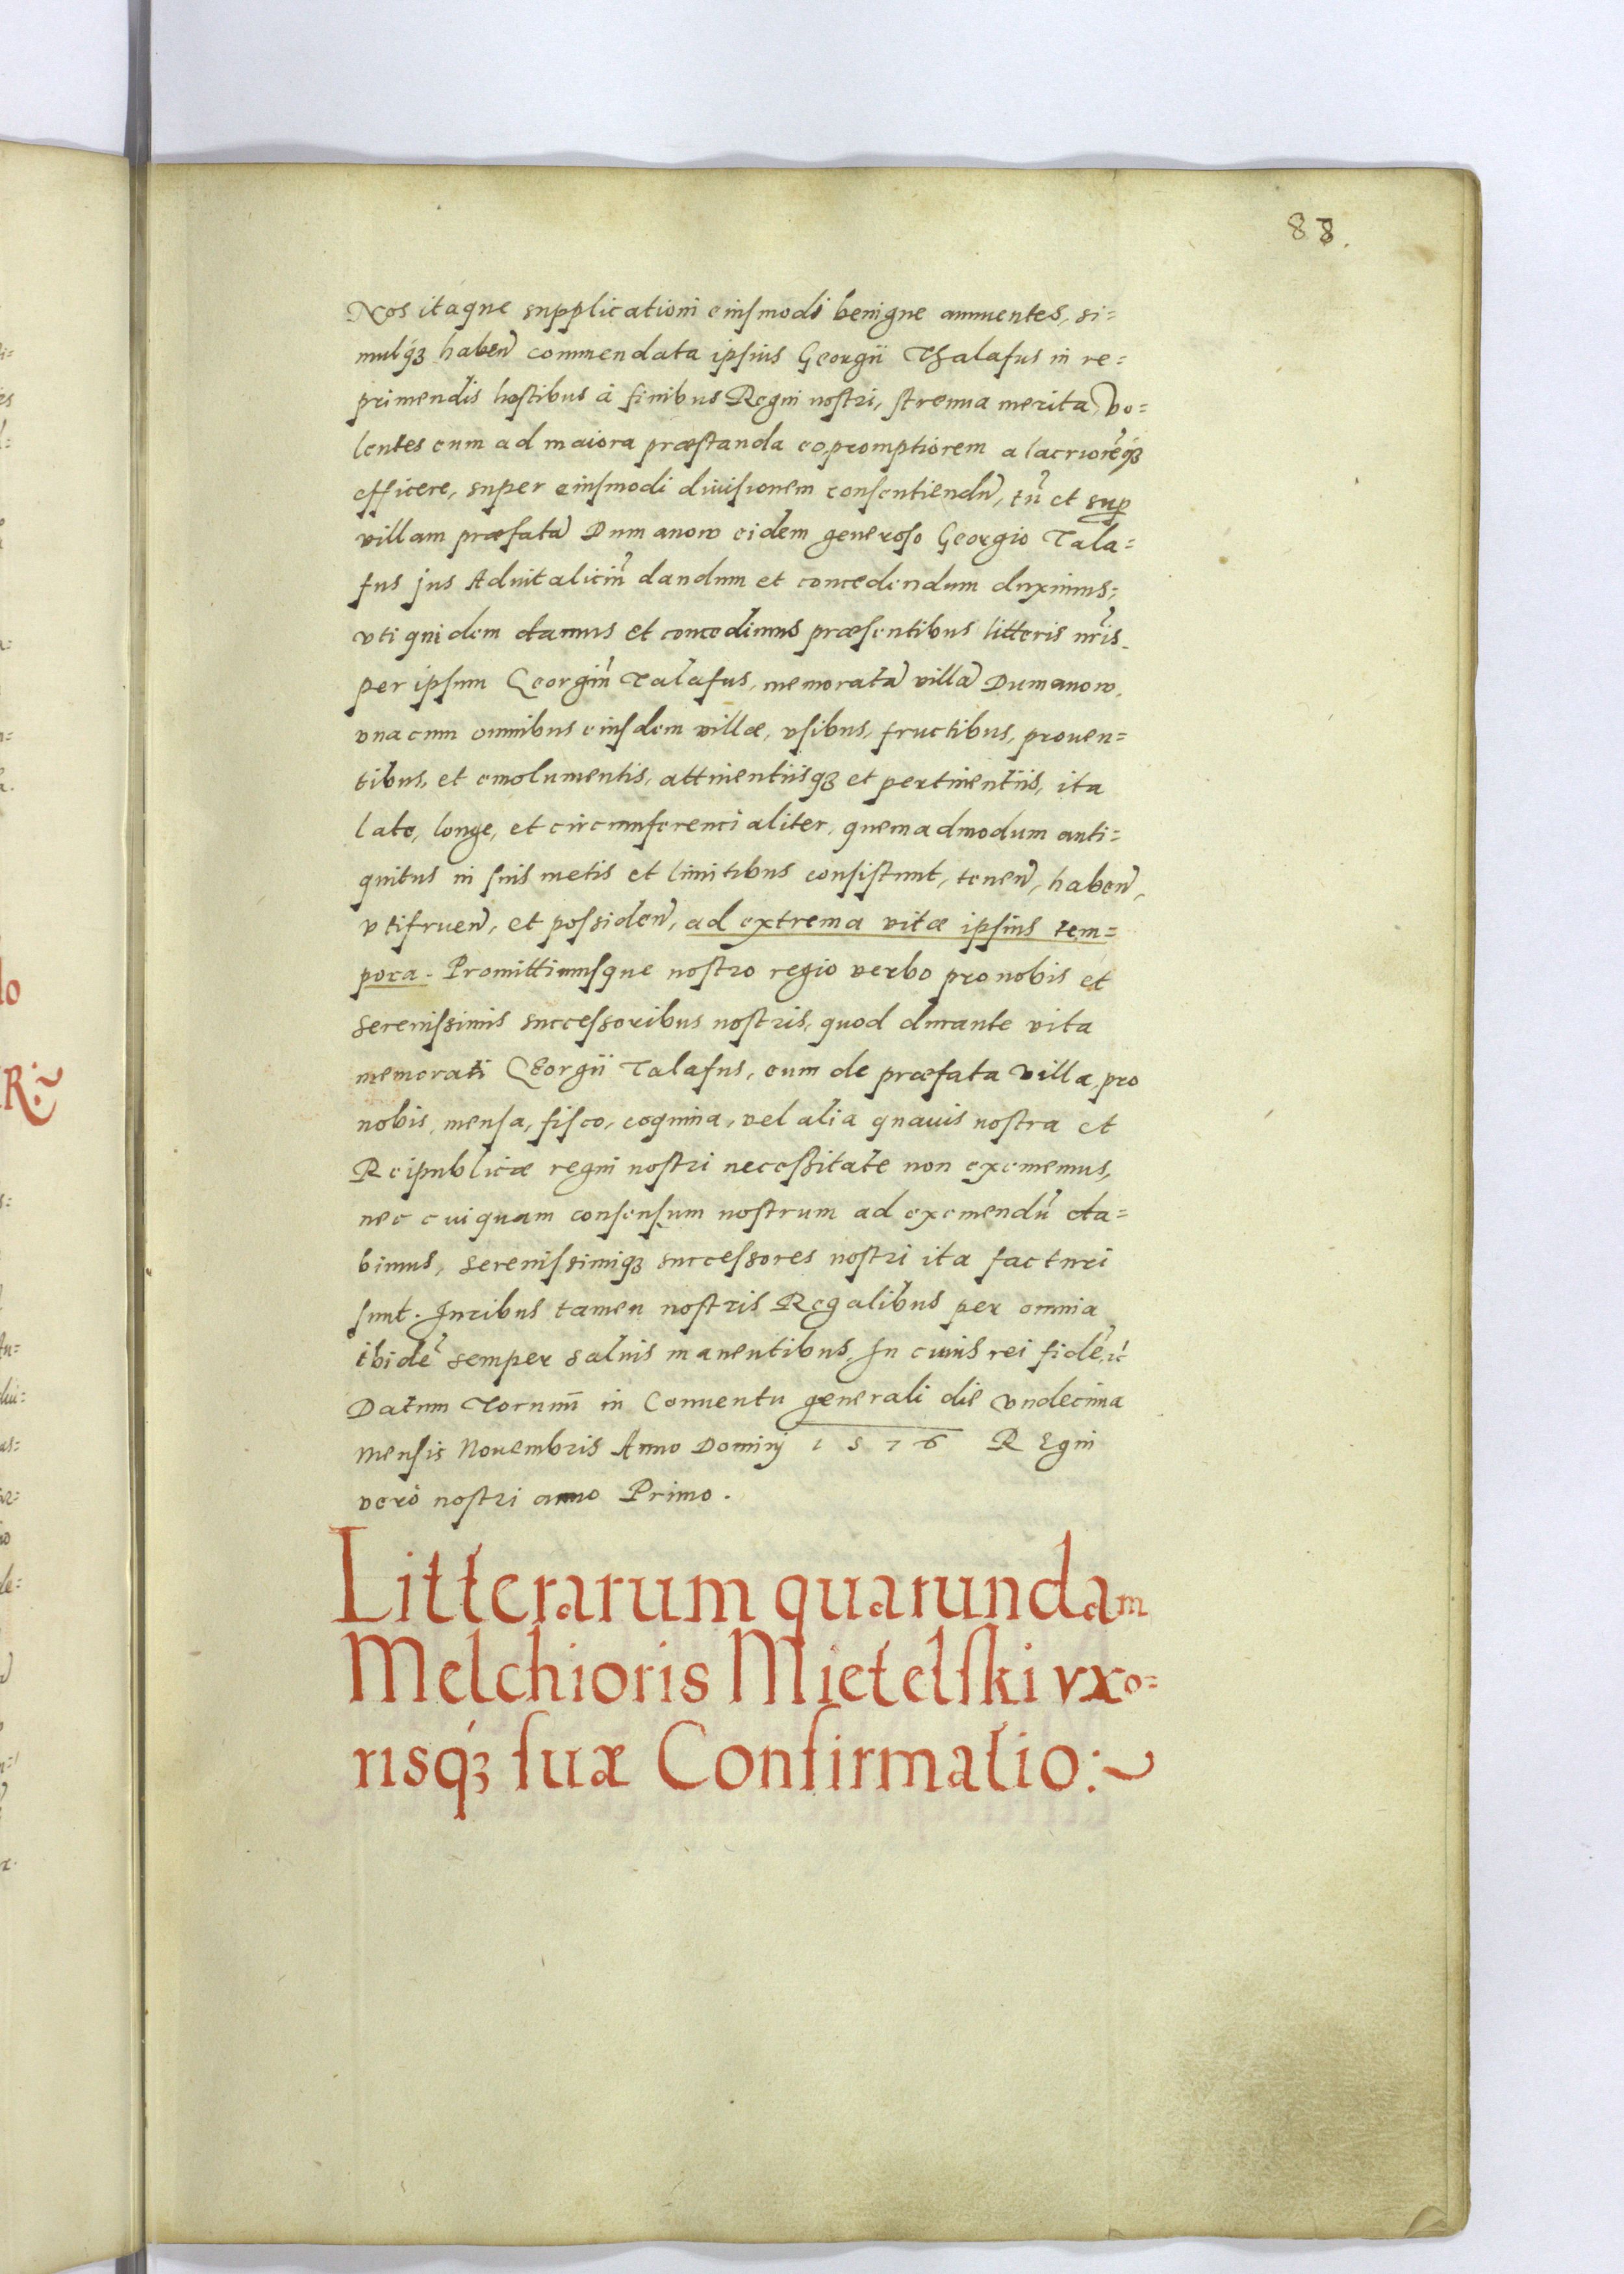 88.
Nos itaque supplicationi eiusmodi benigne annuentes, si=
mulq́ꝫ haben̄ commendata ipsius Georgii Thalafus in re=
primendis hostibus à finibus Regni nostri, strenua merita, vo=
lentes eum ad maiora præstanda eo promptiorem alacriorēq́ꝫ
efficere, super eiusmodi diuisionem consentiendū, tū et sup
villam præfatā Dumanow eidem generoso Georgio Tala=
fus jus Aduitaliciū dandum et concedendum duximus,
vti quidem damus et concedimus præsentibus litteris nr̄is.
per ipsum Georgiū Talafus, memoratā villā Dumanow,
vna cum omnibus eiusdem villæ, vsibus, fructibus, prouen=
tibus, et emolumentis, attinentiisqꝫ et pertinentiis, ita
late, longe, et circumferencialiter, quemadmodum anti=
quitus in suis metis et limitibus consistunt, tenen̄, haben̄,
vtifruen̄, et possiden̄, ad extrema vitæ ipsius tem=
pora. Promittimusque nostro regio verbo pro nobis et
serenissimis successoribus nostris, quod durante vita
memorati Georgii Talafus, eum de præfata villa, pro
nobis, mensa, fisco, coquina, vel alia quauis nostra et
Reipublicæ regni nostri necessitate non eximemus,
nec cuiquam consensum nostrum ad eximendū da=
bimus, serenissimiqꝫ successores nostri ita facturi
sunt. Juribus tamen nostris Regalibus per omnia
ibidē semper saluis manentibus. In cuius rei fidē, ēt
Datum Torunii in Conuentu generali die vndecima
mensis Nouembris Anno Dominj 1576 Regni
verò nostri anno Primo.
Litterarum quarundam
Melchioris Mietelski vxo=
risq́ꝫ suæ Confirmatio:~